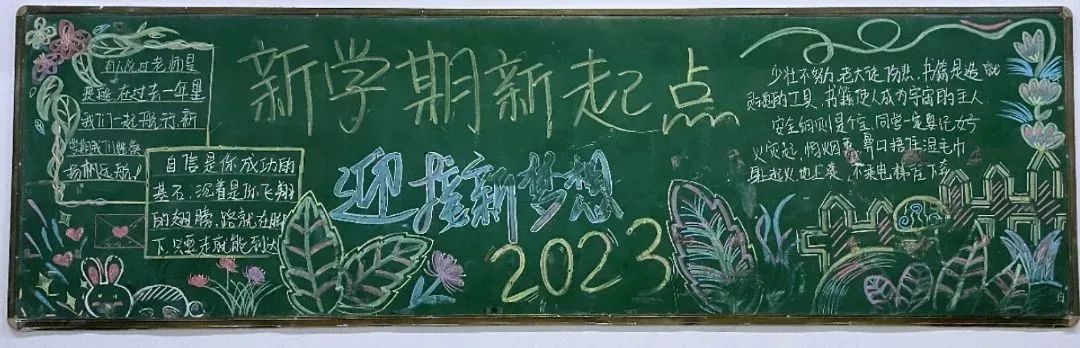 新学期新起点
迎接新梦想
2023
有人说过老师是
在过去一年里
我们一起航行,新
学期我们继续
扬帆远航!
自信是你成功的
基石,沉着是你飞翔
的翅膀,路就在脚
下只要走就能到达
少壮不努力,老大徒伤悲,书籍是造就
灵魂的工具,书籍使人成为宇宙的主人
安全细则是个宝,同学一定要记好
火灾起,怕烟熏,鼻口捂住湿毛巾
身上起火地上滚,不乘电梯往下奔